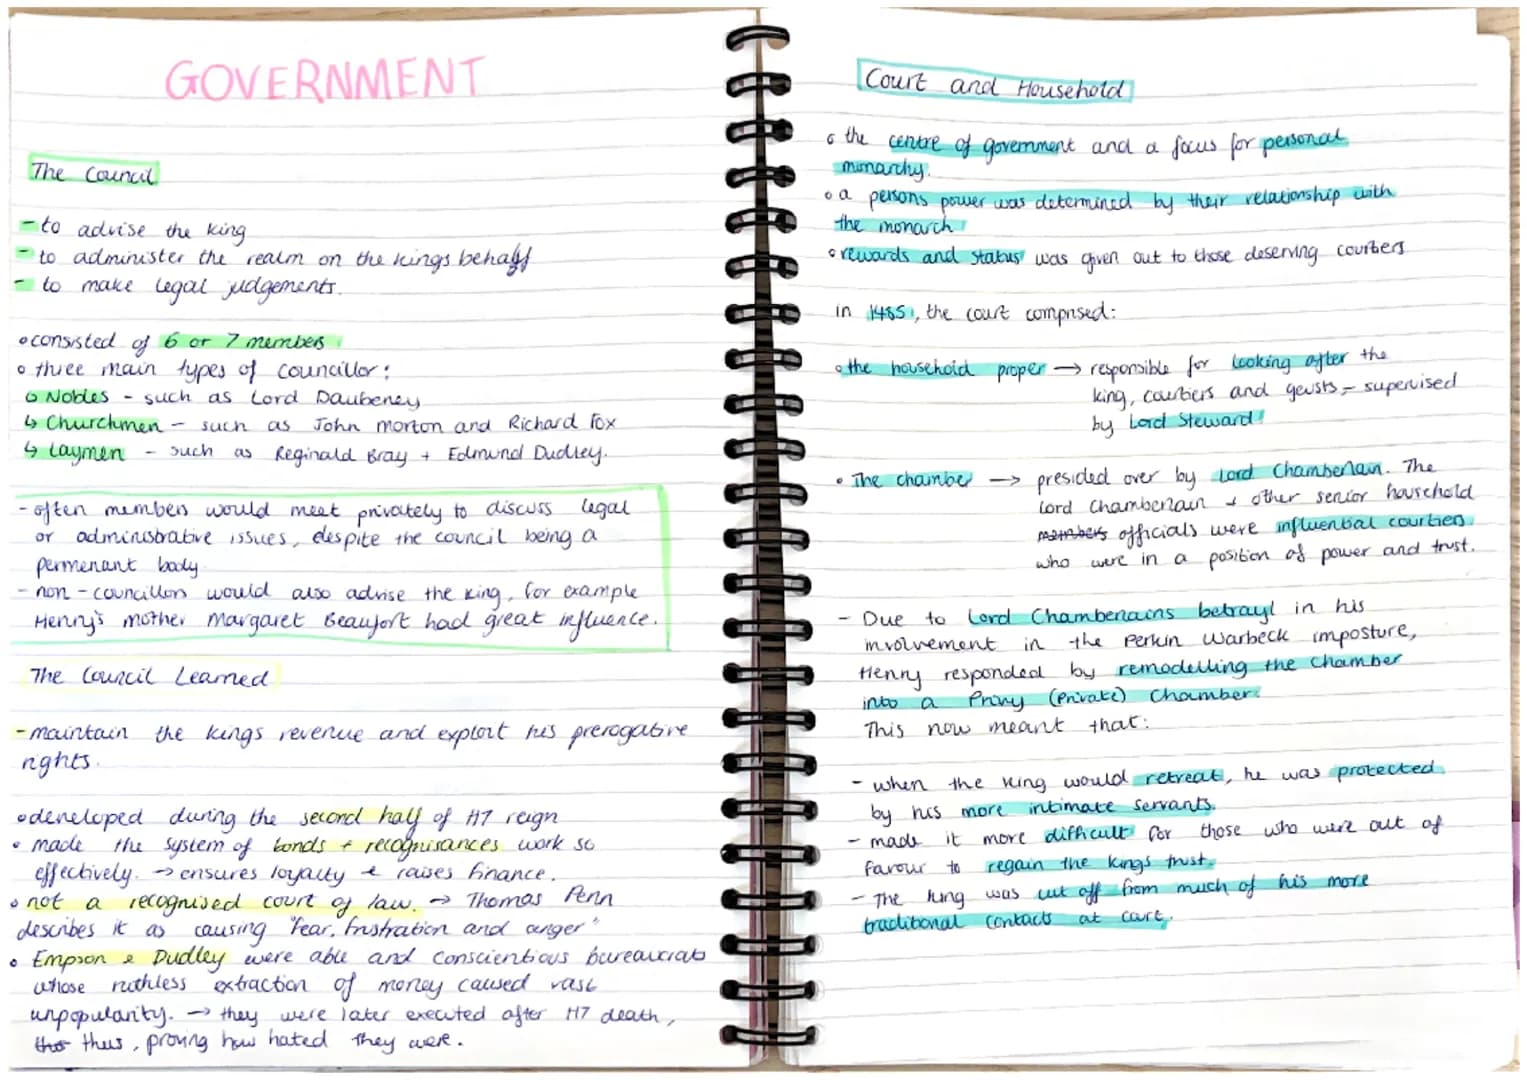 GOVERNMENT
The Council
- to advise the king
- to administer the realm on the kings behalf
- to make legal judgements.
• consisted of 6 or 7 members
• three main types of councillor:
↳ Nobles - such as Lord Daubeney
↳ Churchmen - such as John Morton and Richard Fox
↳ Laymen - such as Reginald Bray + Edmund Dudley.
- often members would meet privately to discuss legal
or administrative issues, despite the council being a
permenant body
- non-councillors would also advise the king, for example
Henry's mother Margaret Beaufort had great influence.
The Council Learned
- maintain the kings revenue and exploit his prerogative
rights.
• developed during the second half of H7 reign
• made the system of bonds + recognisances work so
effectively. → ensures loyalty + raises finance.
• not a recognised court of law. → Thomas Penn
describes it as causing "fear, frustration and anger"
• Empson & Dudley were able and conscientious bureaucrats
whose ruthless extraction of money caused vast
unpopularity. → they were later executed after H7 death,
thus, proving how hated they were.
Court and Household
• the centre of government and a focus for personal
monarchy.
• a persons power was determined by their relationship with
the monarch
• rewards and status was given out to those deserving courtiers
in 1485, the court comprised:
• the household proper → responsible for looking after the
king, courtiers and geusts - supervised
by Lord Steward
• The chamber → presided over by Lord Chamberlain. The
Lord Chamberlain + other senior household
members officials were influential courtiers
who were in a position of power and trust.
- Due to Lord Chamberlains betrayl in his
involvement in the Perkin Warbeck imposture,
Henry responded by remodelling the Chamber
into a Privy (Private) Chamber.
This now meant that:
- when the king would retreat, he was protected
by his more intimate servants.
- made it more difficult for those who were out of
favour to regain the kings trust.
- The king was cut off from much of his more
traditional contacts at court.